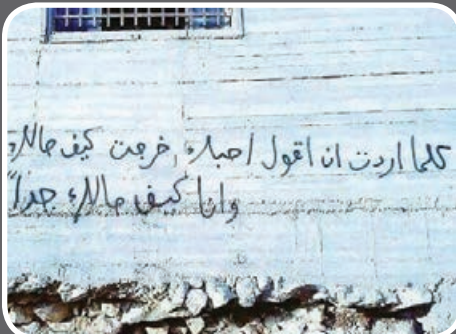 كلما اردت ان اقول احبك، خرجت كيف حالك
وانا كيف حالك جداً